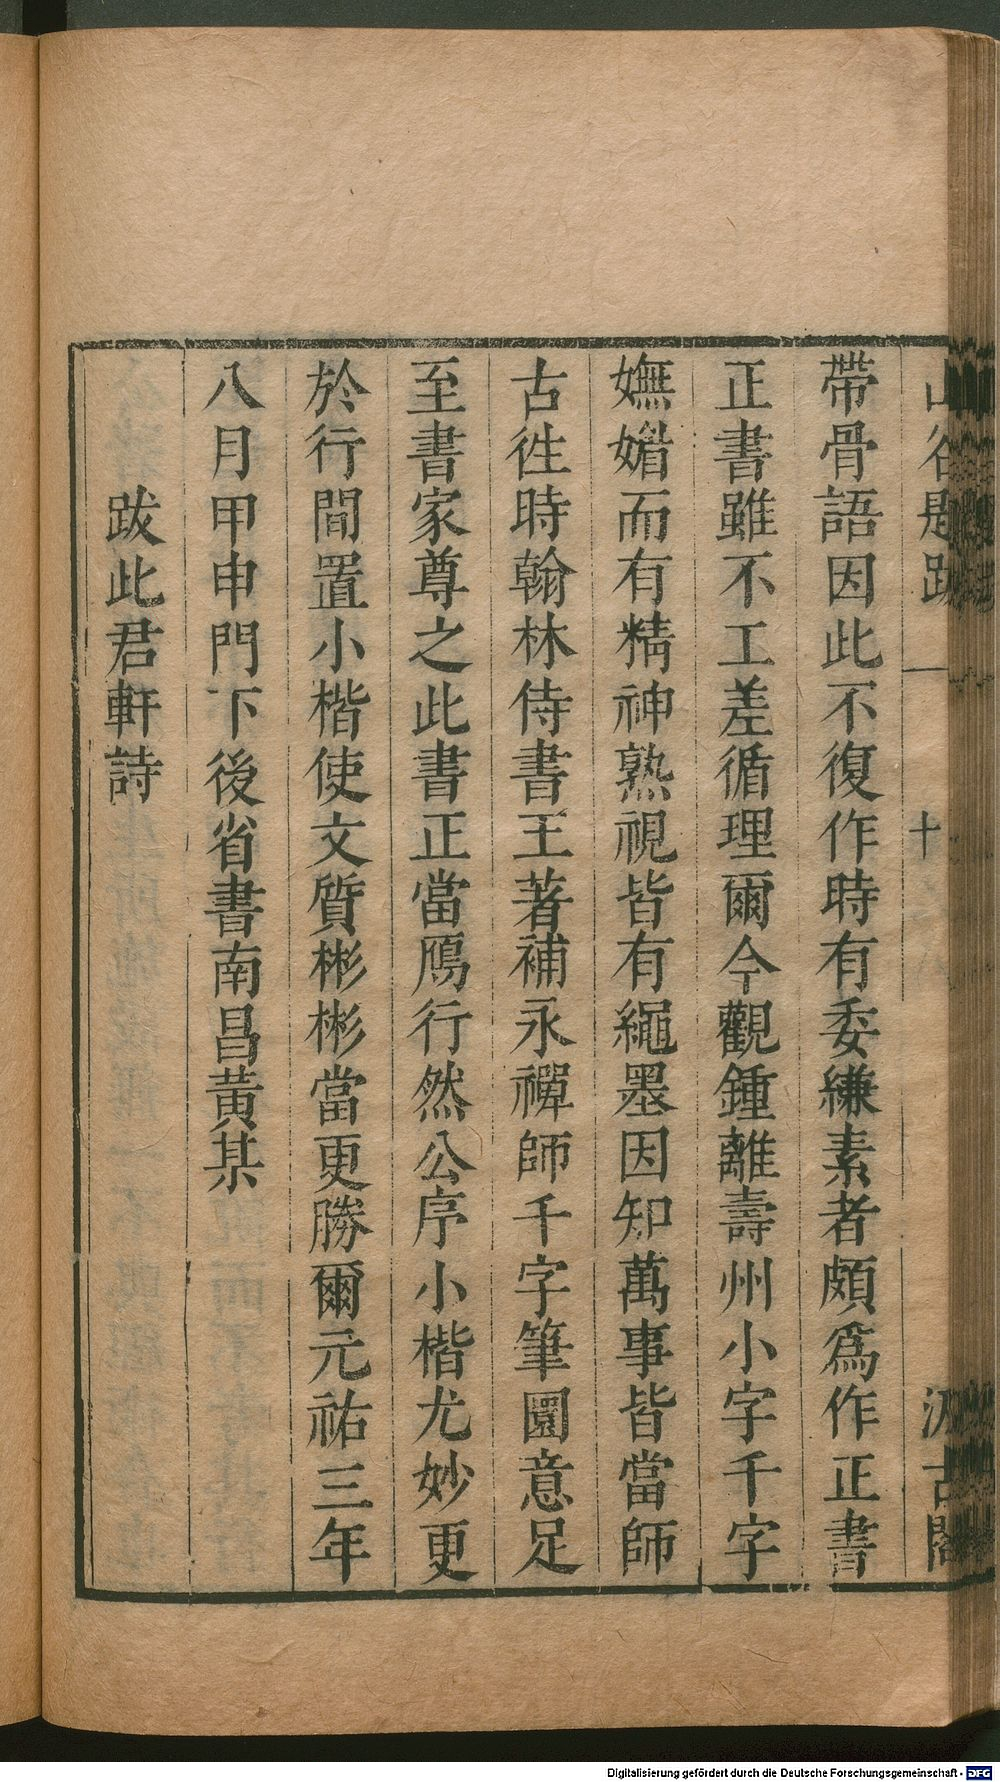 山谷題跋 一 十 汲古閣
帶骨語因此不復作時有委縑素者頗爲作正書
正書雖不工差循理爾今觀鍾離壽州小字千字
嫵媚而有精神熟視皆有繩墨因知萬事皆當師
古徃時翰林侍書王著補永禪師千字筆圜意足
至書家尊之此書正當鴈行然公序小楷尤妙更
於行間置小楷使文質彬彬當更勝爾元祐三年
八月甲申門下後省書南昌黃某
跋此君軒詩
Digitalisierung gefördert durch die Deutsche Forschungsgemeinschaft - DFG